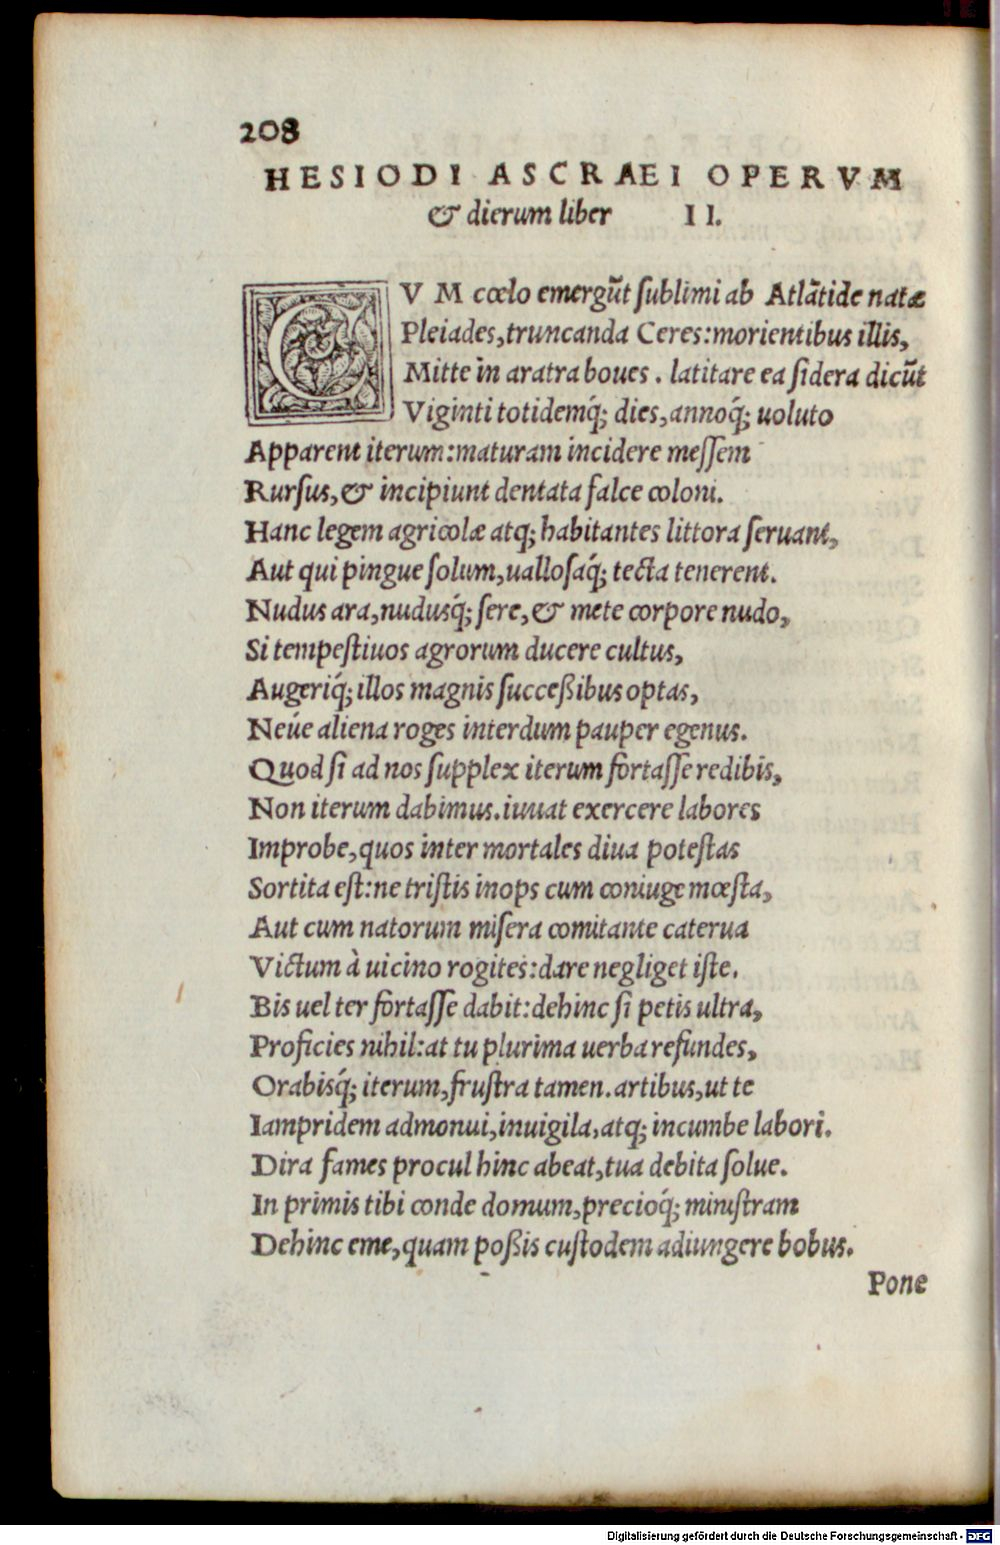 208
HESIODI ASCRAEI OPERVM
& dierum liber II.
CVM cœlo emergũt ſublimi ab Atlãtide natæ
Pleiades, truncanda Ceres: morientibus illis,
Mitte in aratra boues. latitare ea ſidera dicũt
Viginti totidemq́; dies, annoq́; uoluto
Apparent iterum: maturam incidere meſſem
Rurſus, & incipiunt dentata falce coloni.
Hanc legem agricolæ atq; habitantes littora ſeruant,
Aut qui pingue ſolum, ualloſaq́; tecta tenerent.
Nudus ara, nudusq́; ſere, & mete corpore nudo,
Si tempeſtiuos agrorum ducere cultus,
Augeriq́; illos magnis ſucceßibus optas,
Neúe aliena roges interdum pauper egenus.
Quod ſi ad nos ſupplex iterum fortaſſe redibis,
Non iterum dabimus. iuuat exercere labores
Improbe, quos inter mortales diua poteſtas
Sortita eſt: ne triſtis inops cum coniuge mœſta,
Aut cum natorum miſera comitante caterua
Victum à uicino rogites: dare negliget iſte.
Bis uel ter fortaſſe dabit: dehinc ſi petis ultra,
Proficies nihil: at tu plurima uerba refundes,
Orabisq́; iterum, fruſtra tamen. artibus, ut te
Iampridem admonui, inuigila, atq; incumbe labori.
Dira fames procul hinc abeat, tua debita ſolue.
In primis tibi conde domum, precioq́; miniſtram
Dehinc eme, quam poßis cuſtodem adiungere bobus.
Pone
Digitalisierung gefördert durch die Deutsche Forschungsgemeinschaft - DFG